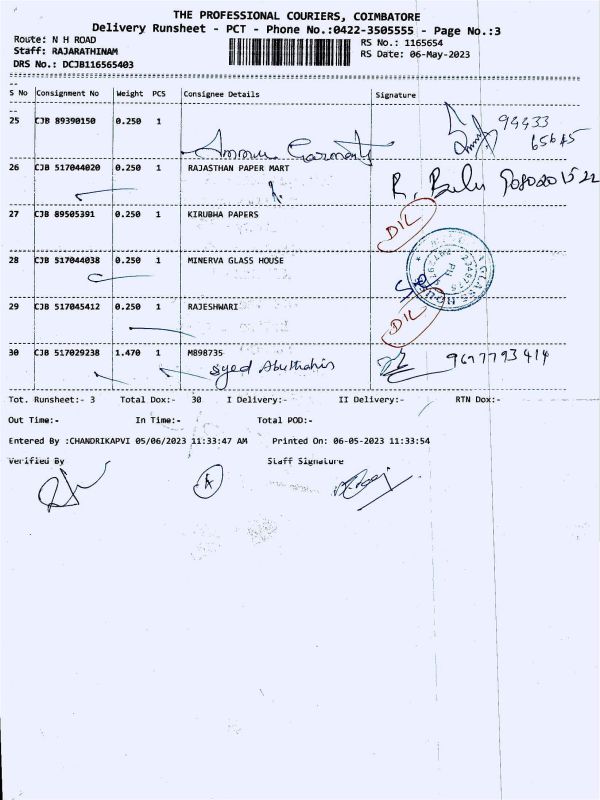 THE PROFESSIONAL COURIERS, COIMBATORE
Delivery Runsheet - PCT - Phone No.:0422-3505555 - Page No.:3
Route: N H ROAD
RS No.: 1165654
Staff: RAJARATHINAM
RS Date: 06-May-2023
DRS No.: DCJB116565403
S No Consignment No Weight PCS Consignee Details Signature
25 CJB 89390150 0.250 1
99433
65645
Garments
26 CJB 517044020 0.250 1 RAJASTHAN PAPER MART
R. Balu
27 CJB 89505391 0.250 1 KIRUBHA PAPERS
DIL
28 CJB 517044038 0.250 1 MINERVA GLASS HOUSE
GLASS HOUSE
29 CJB 517045412 0.250 1 RAJESHWARI
DIL
30 CJB 517029238 1.470 1 M898735
Syed Abuthahir 9677793414
Tot. Runsheet:- 3 Total Dox:- 30 I Delivery:- II Delivery:- RTN Dox:-
Out Time:- In Time:- Total POD:-
Entered By :CHANDRIKAPVI 05/06/2023 11:33:47 AM Printed On: 06-05-2023 11:33:54
Verified By Staff Signature
A